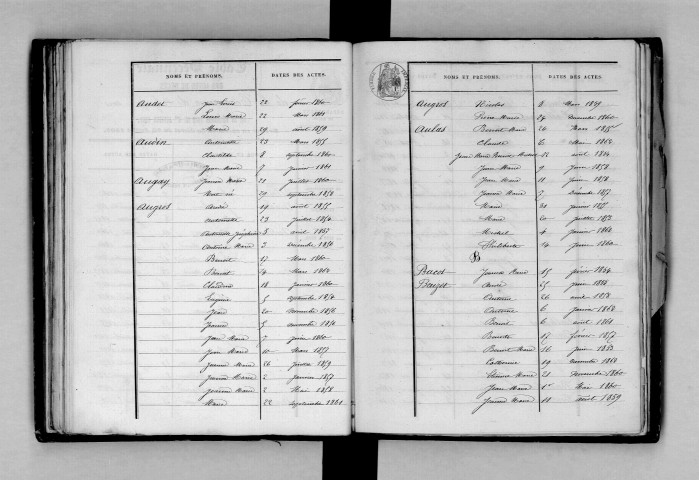 NOMS ET PRÉNOMS. DATES DES ACTES.
Audet Jean Louis 22 février 1860
Louise Marie 22 Mars 1861
Marie 29 avril 1859
Audin Antoinette 23 Mars 1855
Clautilde 8 septembre 1860
Jean Marie janvier 1861
Augay Jeanne Marie 21 juillet 1860
29 septembre 1858
Augros Aimée 19 avril 1855
Antoinette 23 juillet 1854
Antoinette Joséphine 8 avril 1857
Antoine Marie 2 Décembre 1856
Benoit 17 Mars 1860
Benoit 4 Mars 1862
Claudine 18 Janvier 1860
Eugénie 5 septembre 1854
Jean 20 novembre 1856
Jeanne 5 novembre 1856
Jean Marie 7 juin 1860
Jean Marie 10 Mars 1857
Jeanne Marie 26 juillet 1859
Jeanne Marie 2 Janvier 1857
Jeanne Marie 2 Mai 1858
Marie 22 septembre 1861
NOMS ET PRÉNOMS. DATES DES ACTES.
Augros Nicolas 8 Mars 1859
Pierre Marie 24 Décembre 1860
Aulas Benoit Marie 26 Mars 1855
Claude 6 Mars 1862
Jean Marie Benoit 12 avril 1854
Jean Marie 9 juin 1858
Jean Marie 10 juin 1856
Jeanne Marie 7 Décembre 1857
Marie 30 janvier 1855
Marie 20 juillet 1853
Michel 4 janvier 1862
Philiberte 14 janvier 1860
B
Bacot Jeanne Marie 15 février 1854
Baizet Aimée 25 juin 1856
Antoine 26 avril 1858
Antoine 6 Janvier 1862
Benoit 6 avril 1861
Benoite 17 février 1857
Benoit Marie 16 Juin 1853
Catherine 19 novembre 1862
Etienne Marie 21 Décembre 1860
Jean Marie 1er Mai 1860
Jeanne Marie 18 août 1859